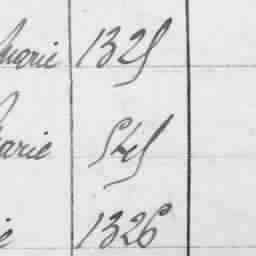 Marie 1325
Marie 545
ie 1326